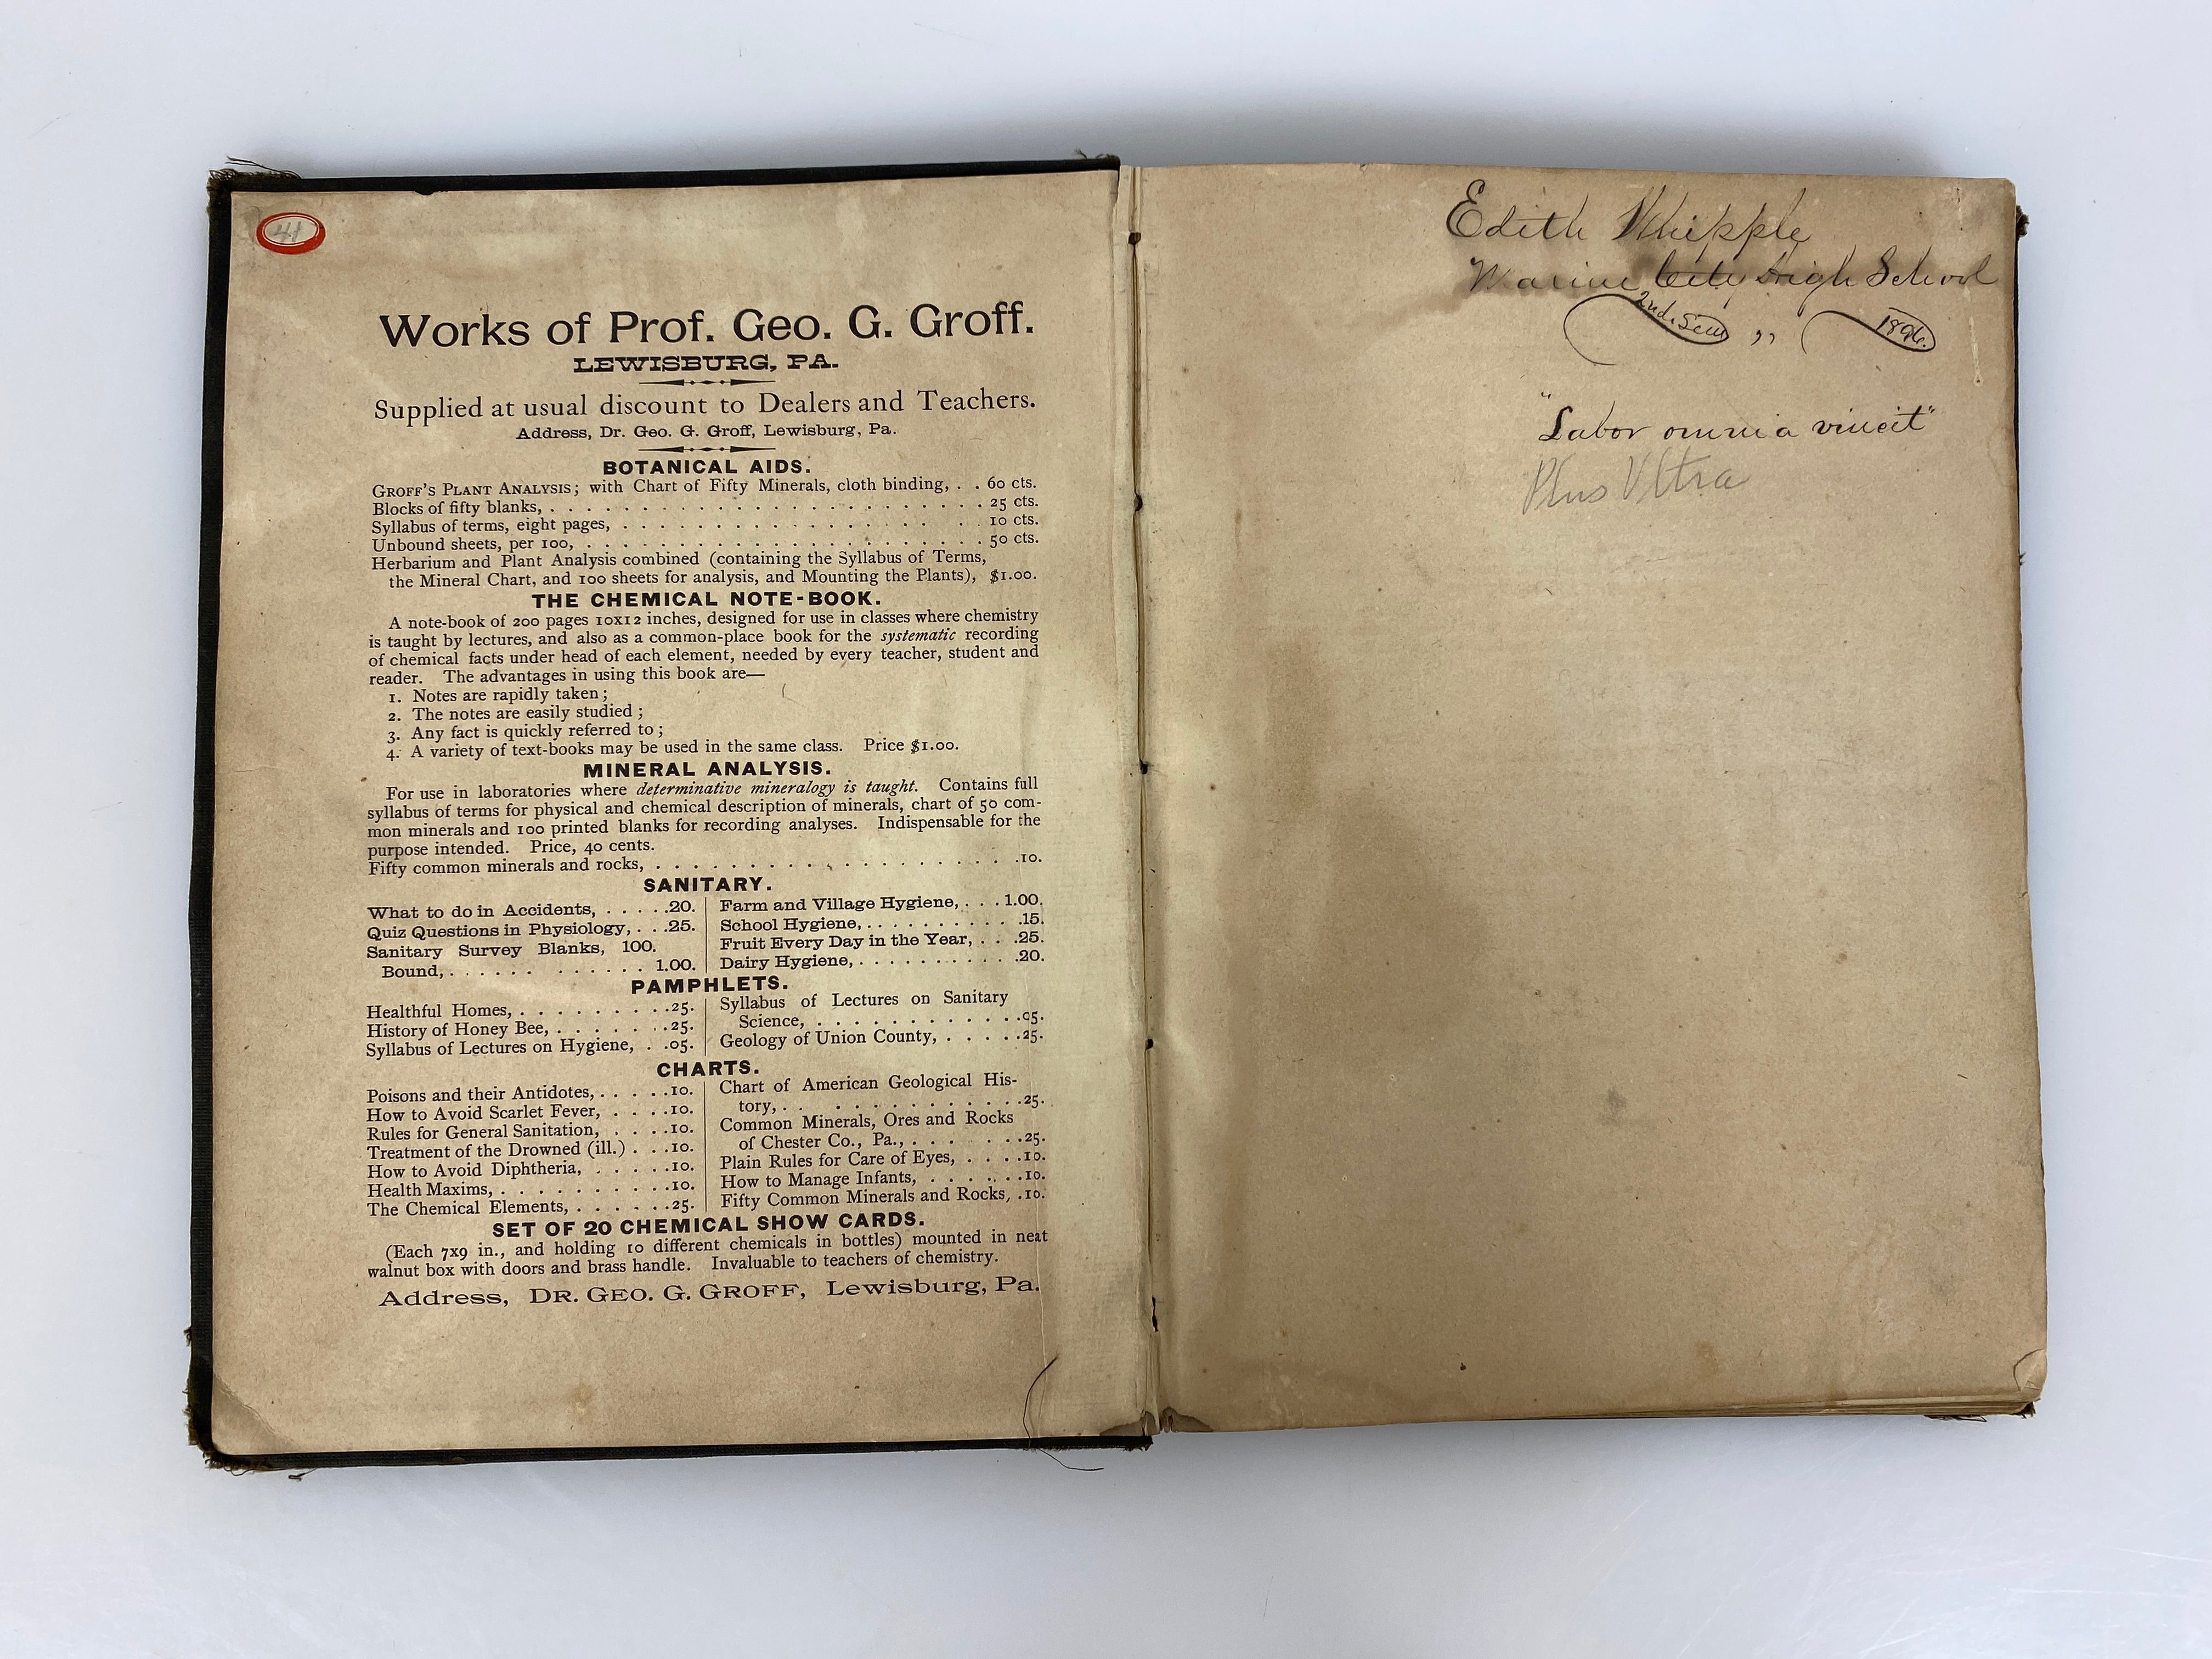 41
Works of Prof. Geo. G. Groff.
LEWISBURG, PA.
Supplied at usual discount to Dealers and Teachers.
Address, Dr. Geo. G. Groff, Lewisburg, Pa.
BOTANICAL AIDS.
GROFF'S PLANT ANALYSIS; with Chart of Fifty Minerals, cloth binding, . . 60 cts.
Blocks of fifty blanks, . . . . . . . . . . . . . . . . . . . . . . . . 25 cts.
Syllabus of terms, eight pages, . . . . . . . . . . . . . . . . . . 10 cts.
Unbound sheets, per 100, . . . . . . . . . . . . . . . . . . . . . . 50 cts.
Herbarium and Plant Analysis combined (containing the Syllabus of Terms,
the Mineral Chart, and 100 sheets for analysis, and Mounting the Plants), $1.00.
THE CHEMICAL NOTE-BOOK.
A note-book of 200 pages 10x12 inches, designed for use in classes where chemistry
is taught by lectures, and also as a common-place book for the systematic recording
of chemical facts under head of each element, needed by every teacher, student and
reader. The advantages in using this book are—
1. Notes are rapidly taken;
2. The notes are easily studied;
3. Any fact is quickly referred to;
4. A variety of text-books may be used in the same class. Price $1.00.
MINERAL ANALYSIS.
For use in laboratories where determinative mineralogy is taught. Contains full
syllabus of terms for physical and chemical description of minerals, chart of 50 com-
mon minerals and 100 printed blanks for recording analyses. Indispensable for the
purpose intended. Price, 40 cents.
Fifty common minerals and rocks, . . . . . . . . . . . . . . . . . . . .10.
SANITARY.
What to do in Accidents, . . . . .20.
Quiz Questions in Physiology, . . .25.
Sanitary Survey Blanks, 100.
Bound, . . . . . . . . . . . . 1.00.
Farm and Village Hygiene, . . . 1.00.
School Hygiene, . . . . . . . . . . .15.
Fruit Every Day in the Year, . . .25.
Dairy Hygiene, . . . . . . . . . . .20.
PAMPHLETS.
Healthful Homes, . . . . . . . . .25.
History of Honey Bee, . . . . . . .25.
Syllabus of Lectures on Hygiene, . .05.
Syllabus of Lectures on Sanitary
Science, . . . . . . . . . . . .05.
Geology of Union County, . . . . .25.
CHARTS.
Poisons and their Antidotes, . . . . .10.
How to Avoid Scarlet Fever, . . . . .10.
Rules for General Sanitation, . . . .10.
Treatment of the Drowned (ill.) . . .10.
How to Avoid Diphtheria, . . . . . .10.
Health Maxims, . . . . . . . . . . .10.
The Chemical Elements, . . . . . . .25.
Chart of American Geological His-
tory, . . . . . . . . . . . . . .25.
Common Minerals, Ores and Rocks
of Chester Co., Pa., . . . . . . .25.
Plain Rules for Care of Eyes, . . . .10.
How to Manage Infants, . . . . . . .10.
Fifty Common Minerals and Rocks, .10.
SET OF 20 CHEMICAL SHOW CARDS.
(Each 7x9 in., and holding 10 different chemicals in bottles) mounted in neat
walnut box with doors and brass handle. Invaluable to teachers of chemistry.
Address, DR. GEO. G. GROFF, Lewisburg, Pa.
Edith Whipple
Marine City High School
2nd. Sem ,, 1896.
"Labor omnia vincit"
Plus Ultra